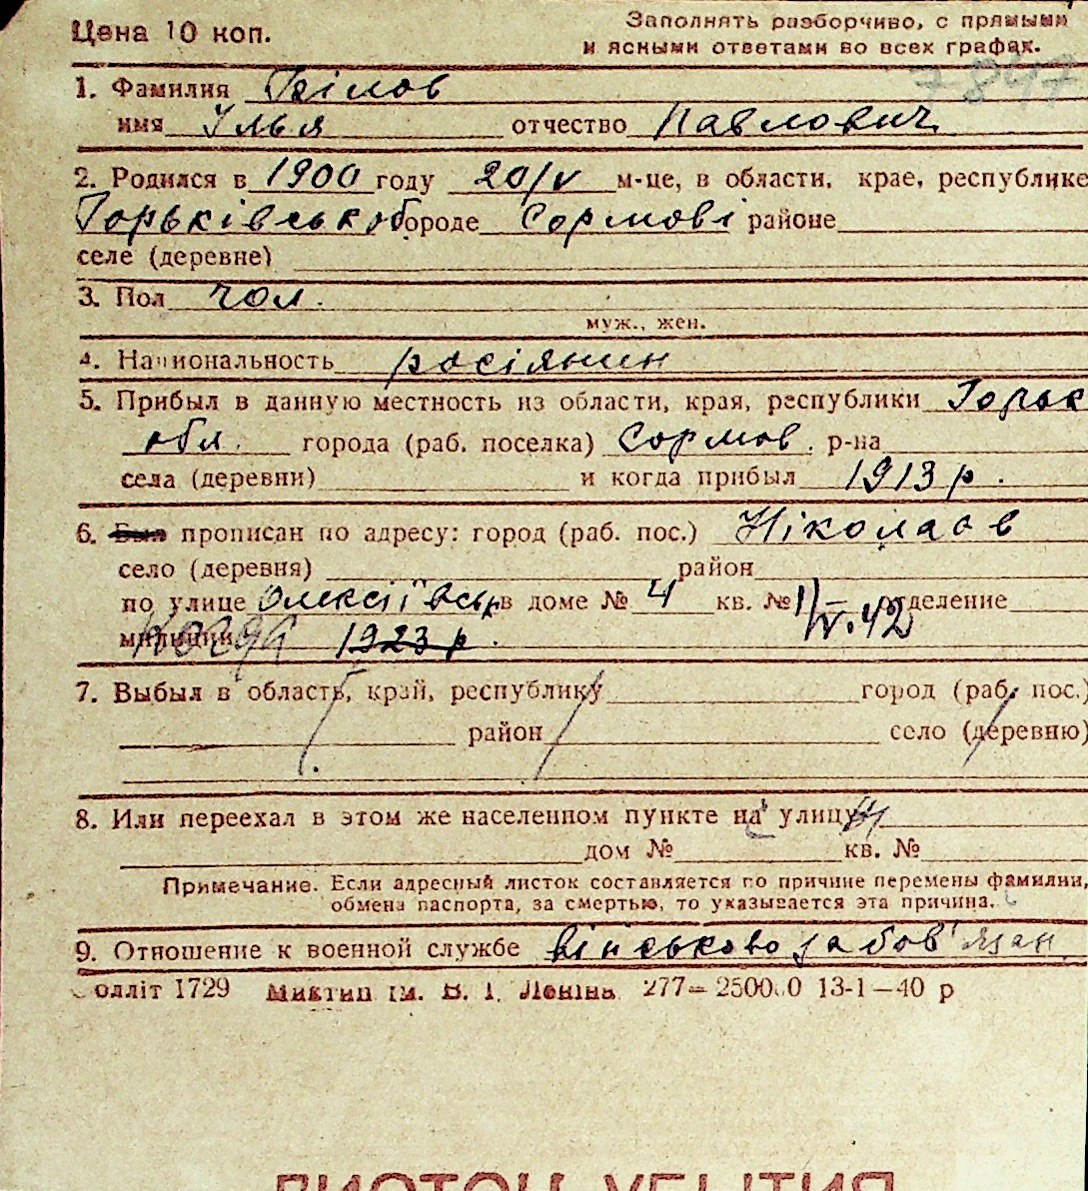 Цена 10 коп.
Заполнять разборчиво, с прямыми
и ясными ответами во всех графах.
7847
1. Фамилия Білов
имя Илья отчество Павлович
2. Родился в 1900 году 20/V м-це, в области, крае, республике
Горьківськ. городе Сормові районе
селе (деревне)
3. Пол чол.
муж., жен.
4. Национальность росіянин
5. Прибыл в данную местность из области, края, республики Горьк
обл. города (раб. поселка) Сормов. р-на
села (деревни) и когда прибыл 1913 р.
6. Был прописан по адресу: город (раб. пос.) Ніколаєв
село (деревня) район
по улице Олексіївськ в доме № 4 кв. № отделение
1/IV.42
милиции 1923 р.
7. Выбыл в область, край, республику город (раб. пос.)
район село (деревню)
8. Или переехал в этом же населенном пункте на улицу
дом № кв. №
Примечание. Если адресный листок составляется по причине перемены фамилии,
обмена паспорта, за смертью, то указывается эта причина.
9. Отношение к военной службе військовозабов'язан
олліт 1729 Миктип ім. В. І. Леніна 277— 250000 13-1—40 р
ЛИСТОК УБЫТИЯ